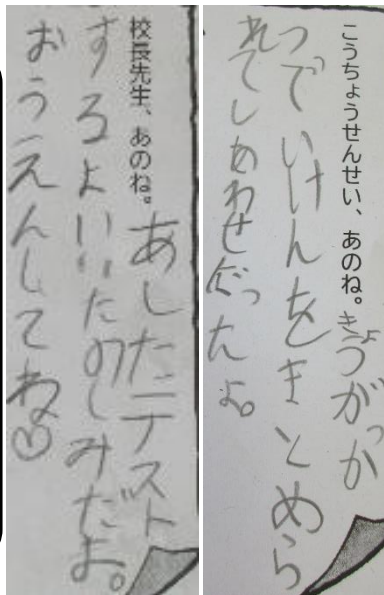 こうちょうせんせい、あのね。きょうがっか
つでいけんをまとめら
れてしあわせだったよ。
校長先生、あのね。あしたテスト
するよ!!たのしみだよ。
おうえんしてね♡